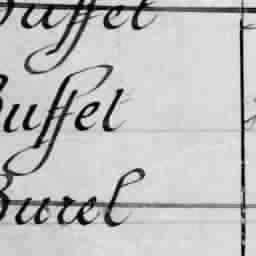 Buffet
Buffet
Burel